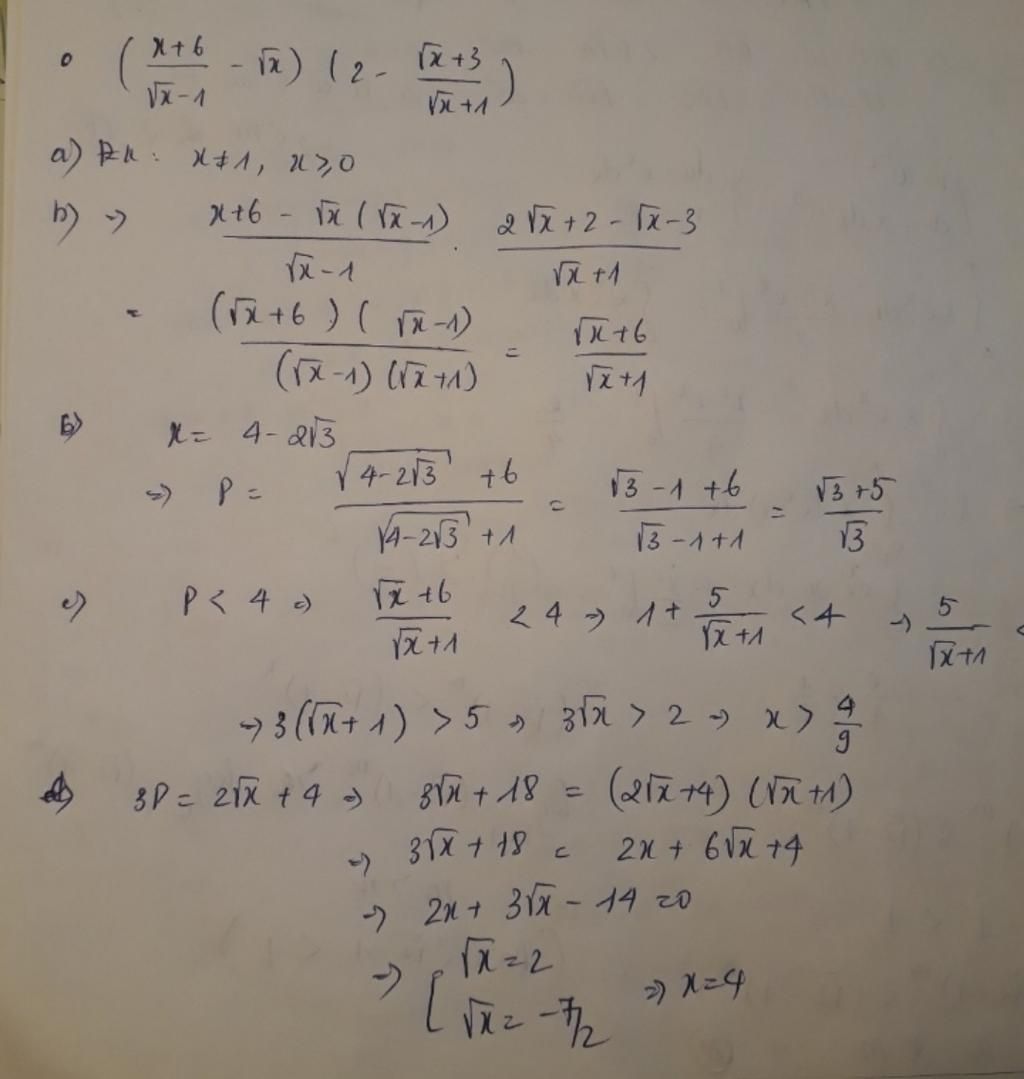 o ( (x+6)/(√x-1) - √x ) ( 2 - (√x+3)/(√x+1) )
a) Đk: x≠1, x⩾0
b) → (x+6 - √x(√x-1))/(√x-1) . (2√x+2-√x-3)/(√x+1)
= ((√x+6)(√x-1))/((√x-1)(√x+1)) = (√x+6)/(√x+1)
b) x = 4-2√3
⇒ P = (√(4-2√3) +6)/(√(4-2√3) +1) = (√3-1+6)/(√3-1+1) = (√3+5)/√3
c) P < 4 ⇒ (√x+6)/(√x+1) < 4 ⇒ 1 + 5/(√x+1) < 4 → 5/(√x+1) <
→ 3(√x+1) > 5 ⇒ 3√x > 2 ⇒ x > 4/9
d) 3P = 2√x + 4 ⇒ 3√x + 18 = (2√x+4)(√x+1)
⇒ 3√x + 18 = 2x + 6√x + 4
⇒ 2x + 3√x - 14 = 0
⇒ [ √x = 2
√x = -7/2 ⇒ x = 4